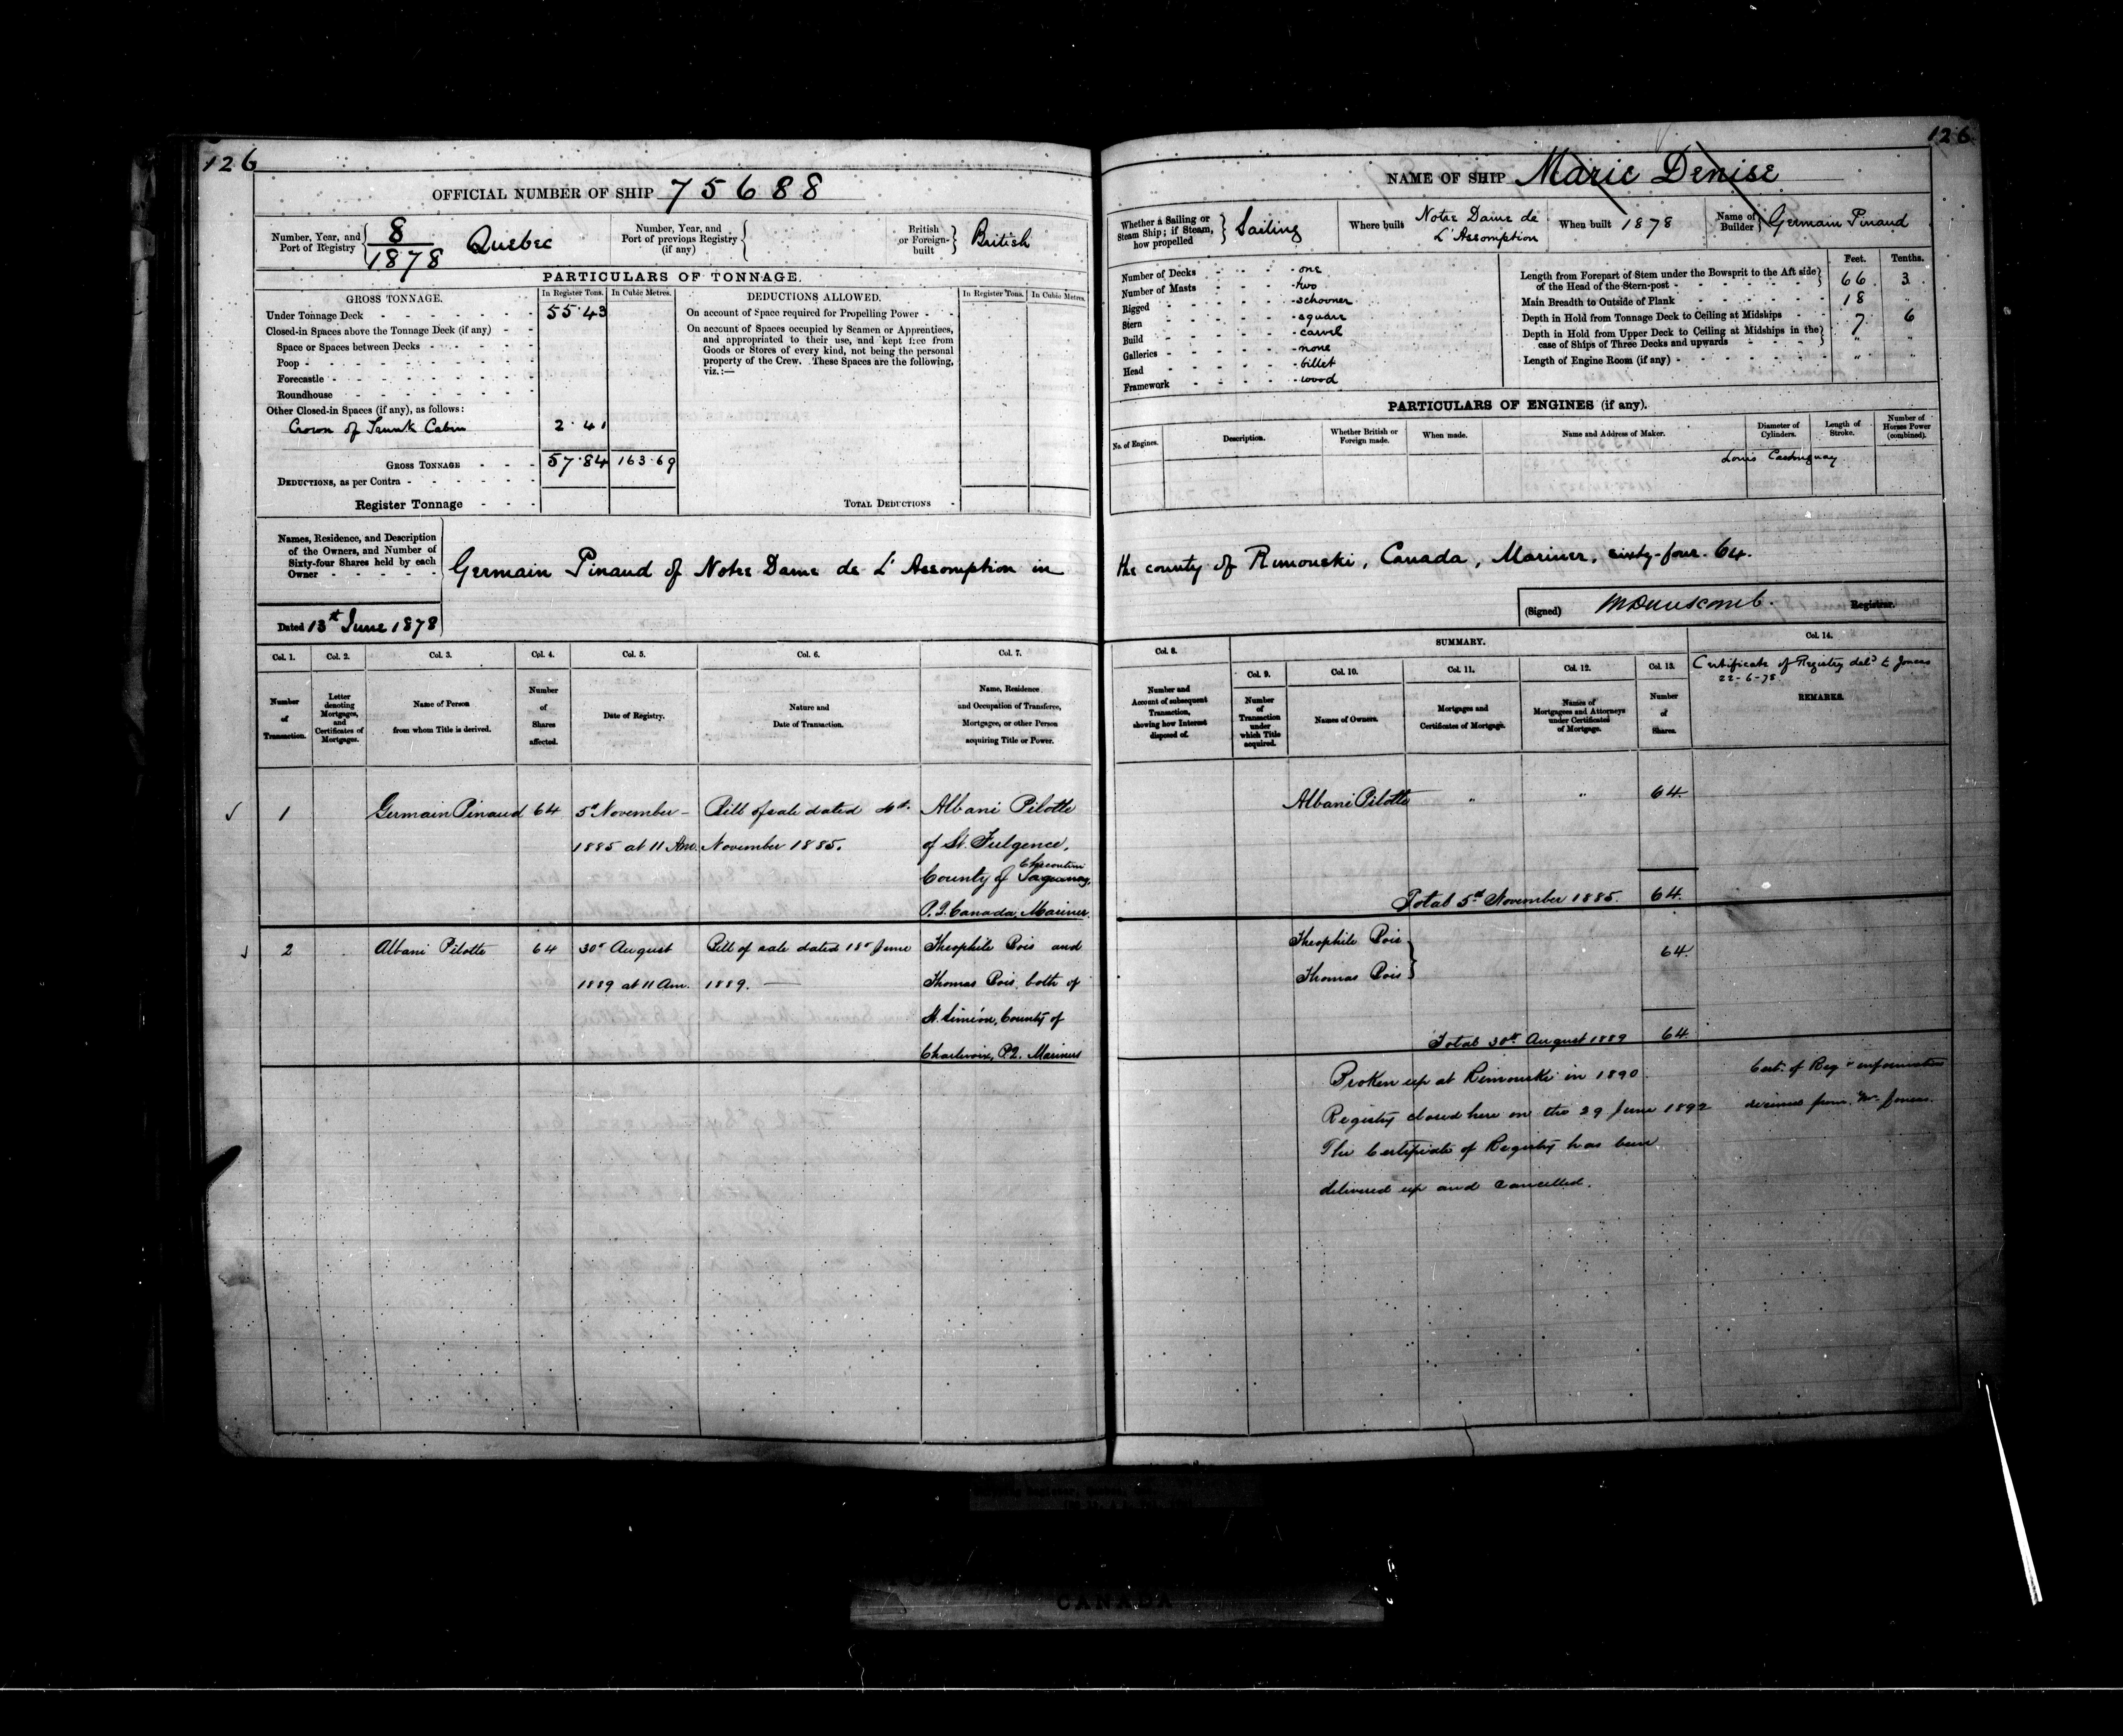 126
126
OFFICIAL NUMBER OF SHIP 75688
Number, Year, and Port of Registry 8/1878 Quebec
Number, Year, and Port of previous Registry (if any)
British or Foreign-built British
PARTICULARS OF TONNAGE.
GROSS TONNAGE. In Register Tons. In Cubic Metres.
Under Tonnage Deck 55.43
Closed-in Spaces above the Tonnage Deck (if any)
Space or Spaces between Decks
Poop
Forecastle
Roundhouse
Other Closed-in Spaces (if any), as follows:
Crown of Trunk Cabin 2.41
GROSS TONNAGE 57.84 163.69
DEDUCTIONS, as per Contra
Register Tonnage
DEDUCTIONS ALLOWED. In Register Tons. In Cubic Metres.
On account of Space required for Propelling Power
On account of Spaces occupied by Seamen or Apprentices,
and appropriated to their use, and kept free from
Goods or Stores of every kind, not being the personal
property of the Crew. These Spaces are the following,
viz.:—
TOTAL DEDUCTIONS
NAME OF SHIP Marie Denise
Whether a Sailing or Steam Ship; if Steam, how propelled Sailing
Where built Notre Dame de L'Assomption
When built 1878
Name of Builder Germain Pinaud
Number of Decks one
Number of Masts two
Rigged schooner
Stern square
Build carvel
Galleries none
Head billet
Framework wood
Feet. Tenths.
Length from Forepart of Stem under the Bowsprit to the Aft side
of the Head of the Stern-post 66 3
Main Breadth to Outside of Plank 18 "
Depth in Hold from Tonnage Deck to Ceiling at Midships 7 6
Depth in Hold from Upper Deck to Ceiling at Midships in the
case of Ships of Three Decks and upwards " "
Length of Engine Room (if any) " "
PARTICULARS OF ENGINES (if any).
No. of Engines. Description. Whether British or Foreign made. When made. Name and Address of Maker. Diameter of Cylinders. Length of Stroke. Number of Horses Power (combined).
Louis
Names, Residence, and Description
of the Owners, and Number of
Sixty-four Shares held by each
Owner
Germain Pinaud of Notre Dame de L'Assomption in the county of Rimouski, Canada, Mariner, sixty-four. 64.
Dated 13th June 1878
(Signed) Registrar.
Col. 1. Col. 2. Col. 3. Col. 4. Col. 5. Col. 6. Col. 7.
Number of Transaction.
Letter denoting Mortgages, and Certificates of Mortgages.
Name of Person from whom Title is derived.
Number of Shares affected.
Date of Registry.
Nature and Date of Transaction.
Name, Residence and Occupation of Transferee, Mortgagee, or other Person acquiring Title or Power.
Col. 8. SUMMARY. Col. 14.
Col. 9. Col. 10. Col. 11. Col. 12. Col. 13.
Number and Account of subsequent Transaction, showing how Interest disposed of.
Number of Transaction under which Title acquired.
Names of Owners.
Mortgages and Certificates of Mortgage.
Names of Mortgagees and Attorneys under Certificates of Mortgage.
Number of Shares.
Certificate of Registry deld to Jones
22-6-78.
REMARKS.
1 Germain Pinaud 64 5th November 1885 at 11 Am. Bill of sale dated 4th November 1885.
Albani Pilotte
of St. Fulgence,
County of Saguenay, Chicoutimi
P.Q. Canada, Mariner.
Albani Pilotte " " 64
Total 5th November 1885. 64.
2 Albani Pilotte 64 30th August 1889 at 11 Am. Bill of sale dated 18th June 1889.
Theophile Bois and
Thomas Bois both of
St. Siméon, County of
Charlevoix, P.Q. Mariners
Theophile Bois
Thomas Bois 64.
Total 30th August 1889 64
Broken up at Rimouski in 1890.
Registry closed here on the 29 June 1892
The Certificate of Registry has been
delivered up and cancelled.
Cert. of Reg & information
received from Mr.
CANADA